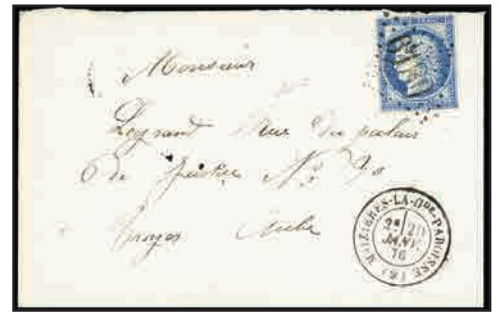 Monsieur
Legrand Rue du palais
de justice No
Troyes Aube
MAIZIERES-LA-Gde-PAROISSE (9)
2E 20
JANV.
76